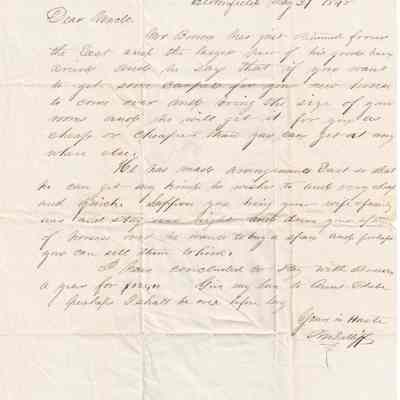 Bloomfield May 31 1870
Dear Uncle.
Mr Brown has just returned from
the East and the larger part of his goods have
arrived and he say that if you want
to get some carpets for your new house
to come over and bring the size of your
rooms and he will get it for you as
cheap or cheaper than you can get at any
where else.
He has made arrangements East so that
he can get any kind he wishes to and very cheap
and quick. Suppose you bring your wife & family
over and stay one night and drive your span
of horses over he wants to buy a span and perhaps
you can sell them to him.
I have concluded to stay with
a year for Give my love to Aunt
Perhaps I shall be over before long
Yours in Haste